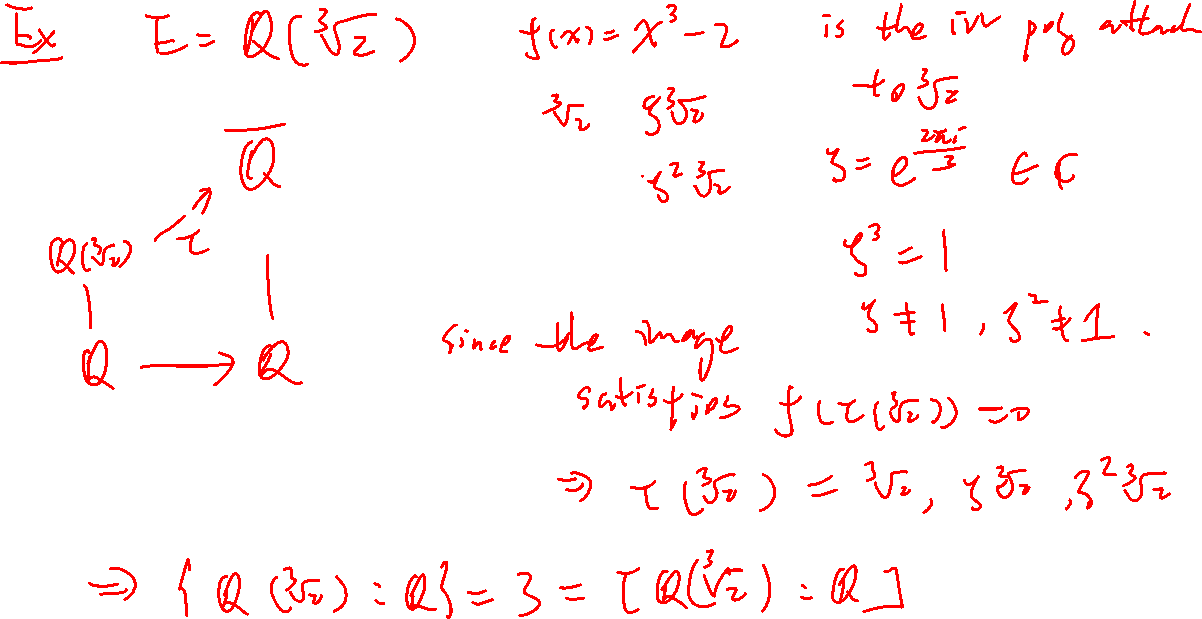 Ex E = ℚ(∛2) f(x) = x³ - 2 is the irr poly attach
to ∛2
∛2 ζ∛2
ζ²∛2
ζ = e^{2πi/3} ∈ ℂ
ζ³ = 1
ζ ≠ 1, ζ² ≠ 1.
ℚ̅
ℚ(∛2) τ
ℚ → ℚ
since the image
satisfies f(τ(∛2)) = 0
⇒ τ(∛2) = ∛2, ζ∛2, ζ²∛2
⇒ {ℚ(∛2) : ℚ} = 3 = [ℚ(∛2) : ℚ]